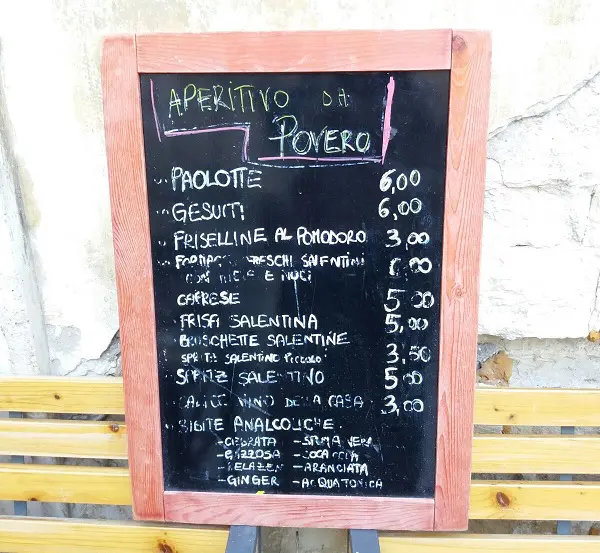 APERITIVO DA
POVERO
PAOLOTTE 6,00
GESUITI 6,00
FRISELLINE AL POMODORO 3,00
FORMAGGI FRESCHI SALENTINI
CON MIELE E NOCI
CAPRESE 5,00
FRISA SALENTINA 5,00
BRUSCHETTE SALENTINE
SPRITZ SALENTINO PICCOLO 3,50
SPRITZ SALENTINO 5,00
CALICE VINO DELLA CASA 3,00
BIBITE ANALCOLICHE
- CEDRATA - SPUMA NERA
- GAZZOSA - COCA COLA
- ARANCIATA
- GINGER - ACQUA TONICA